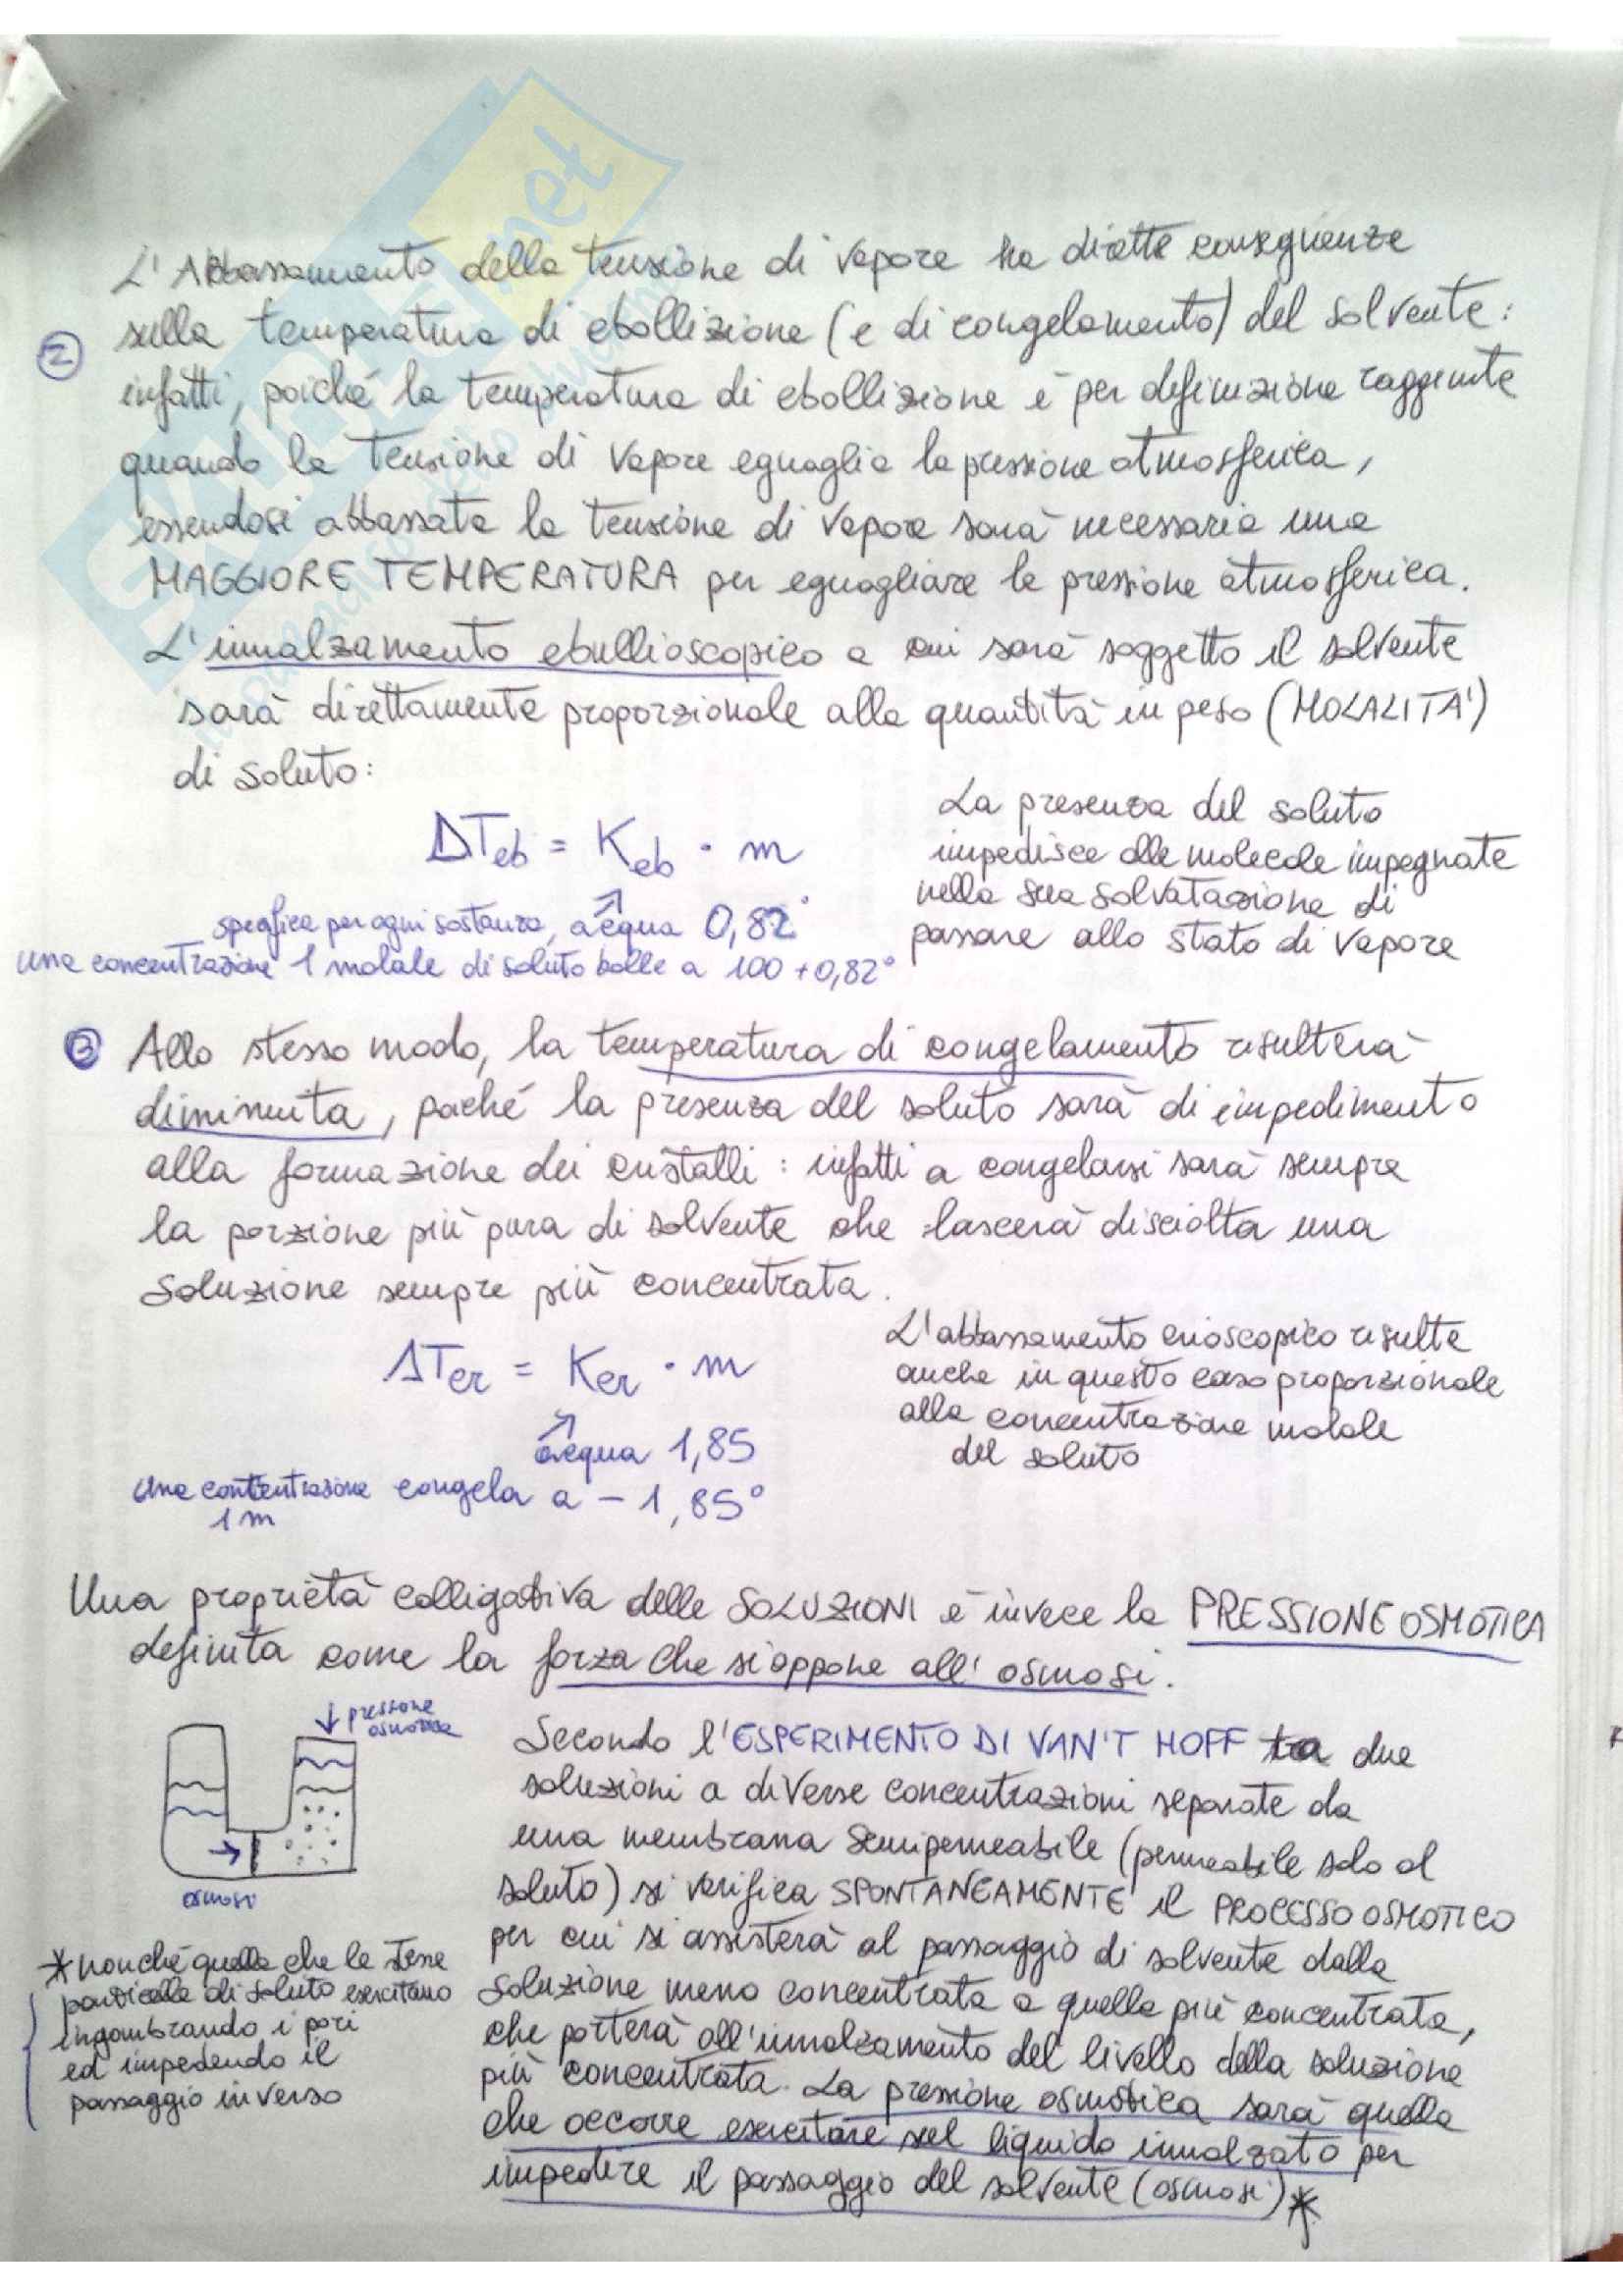 L'Abbassamento della tensione di vapore ha dirette conseguenze
② sulla temperatura di ebollizione (e di congelamento) del solvente:
infatti, poiché la temperatura di ebollizione è per definizione raggiunta
quando la tensione di vapore eguaglia la pressione atmosferica,
essendosi abbassata la tensione di vapore sarà necessaria una
MAGGIORE TEMPERATURA per eguagliare la pressione atmosferica.
L'innalzamento ebullioscopico a cui sarà soggetto il solvente
sarà direttamente proporzionale alla quantità in peso (MOLALITA')
di soluto:
ΔTeb = Keb · m
specifica per ogni sostanza, acqua 0,82°
una concentrazione 1 molale di soluto bolle a 100 + 0,82°
La presenza del soluto
impedisce alle molecole impegnate
nella sua solvatazione di
passare allo stato di vapore
③ Allo stesso modo, la temperatura di congelamento risulterà
diminuita, poiché la presenza del soluto sarà di impedimento
alla formazione dei cristalli: infatti a congelarsi sarà sempre
la porzione più pura di solvente che lascerà disciolta una
soluzione sempre più concentrata.
ΔTcr = Kcr · m
acqua 1,85
una concentrazione congela a - 1,85°
1 m
L'abbassamento crioscopico risulta
anche in questo caso proporzionale
alla concentrazione molale
del soluto
Una proprietà colligativa delle SOLUZIONI è invece la PRESSIONE OSMOTICA
definita come la forza che si oppone all'osmosi.
pressione
osmotica
osmosi
Secondo l'ESPERIMENTO DI VAN'T HOFF tra due
soluzioni a diverse concentrazioni separate da
una membrana semipermeabile (permeabile solo al
soluto) si verifica SPONTANEAMENTE il PROCESSO OSMOTICO
per cui si assisterà al passaggio di solvente dalla
soluzione meno concentrata a quella più concentrata,
che porterà all'innalzamento del livello della soluzione
più concentrata. La pressione osmotica sarà quella
che occorre esercitare sul liquido innalzato per
impedire il passaggio del solvente (osmosi)*
* nonché quella che le stesse
particelle di soluto esercitano
ingombrando i pori
ed impedendo il
passaggio inverso